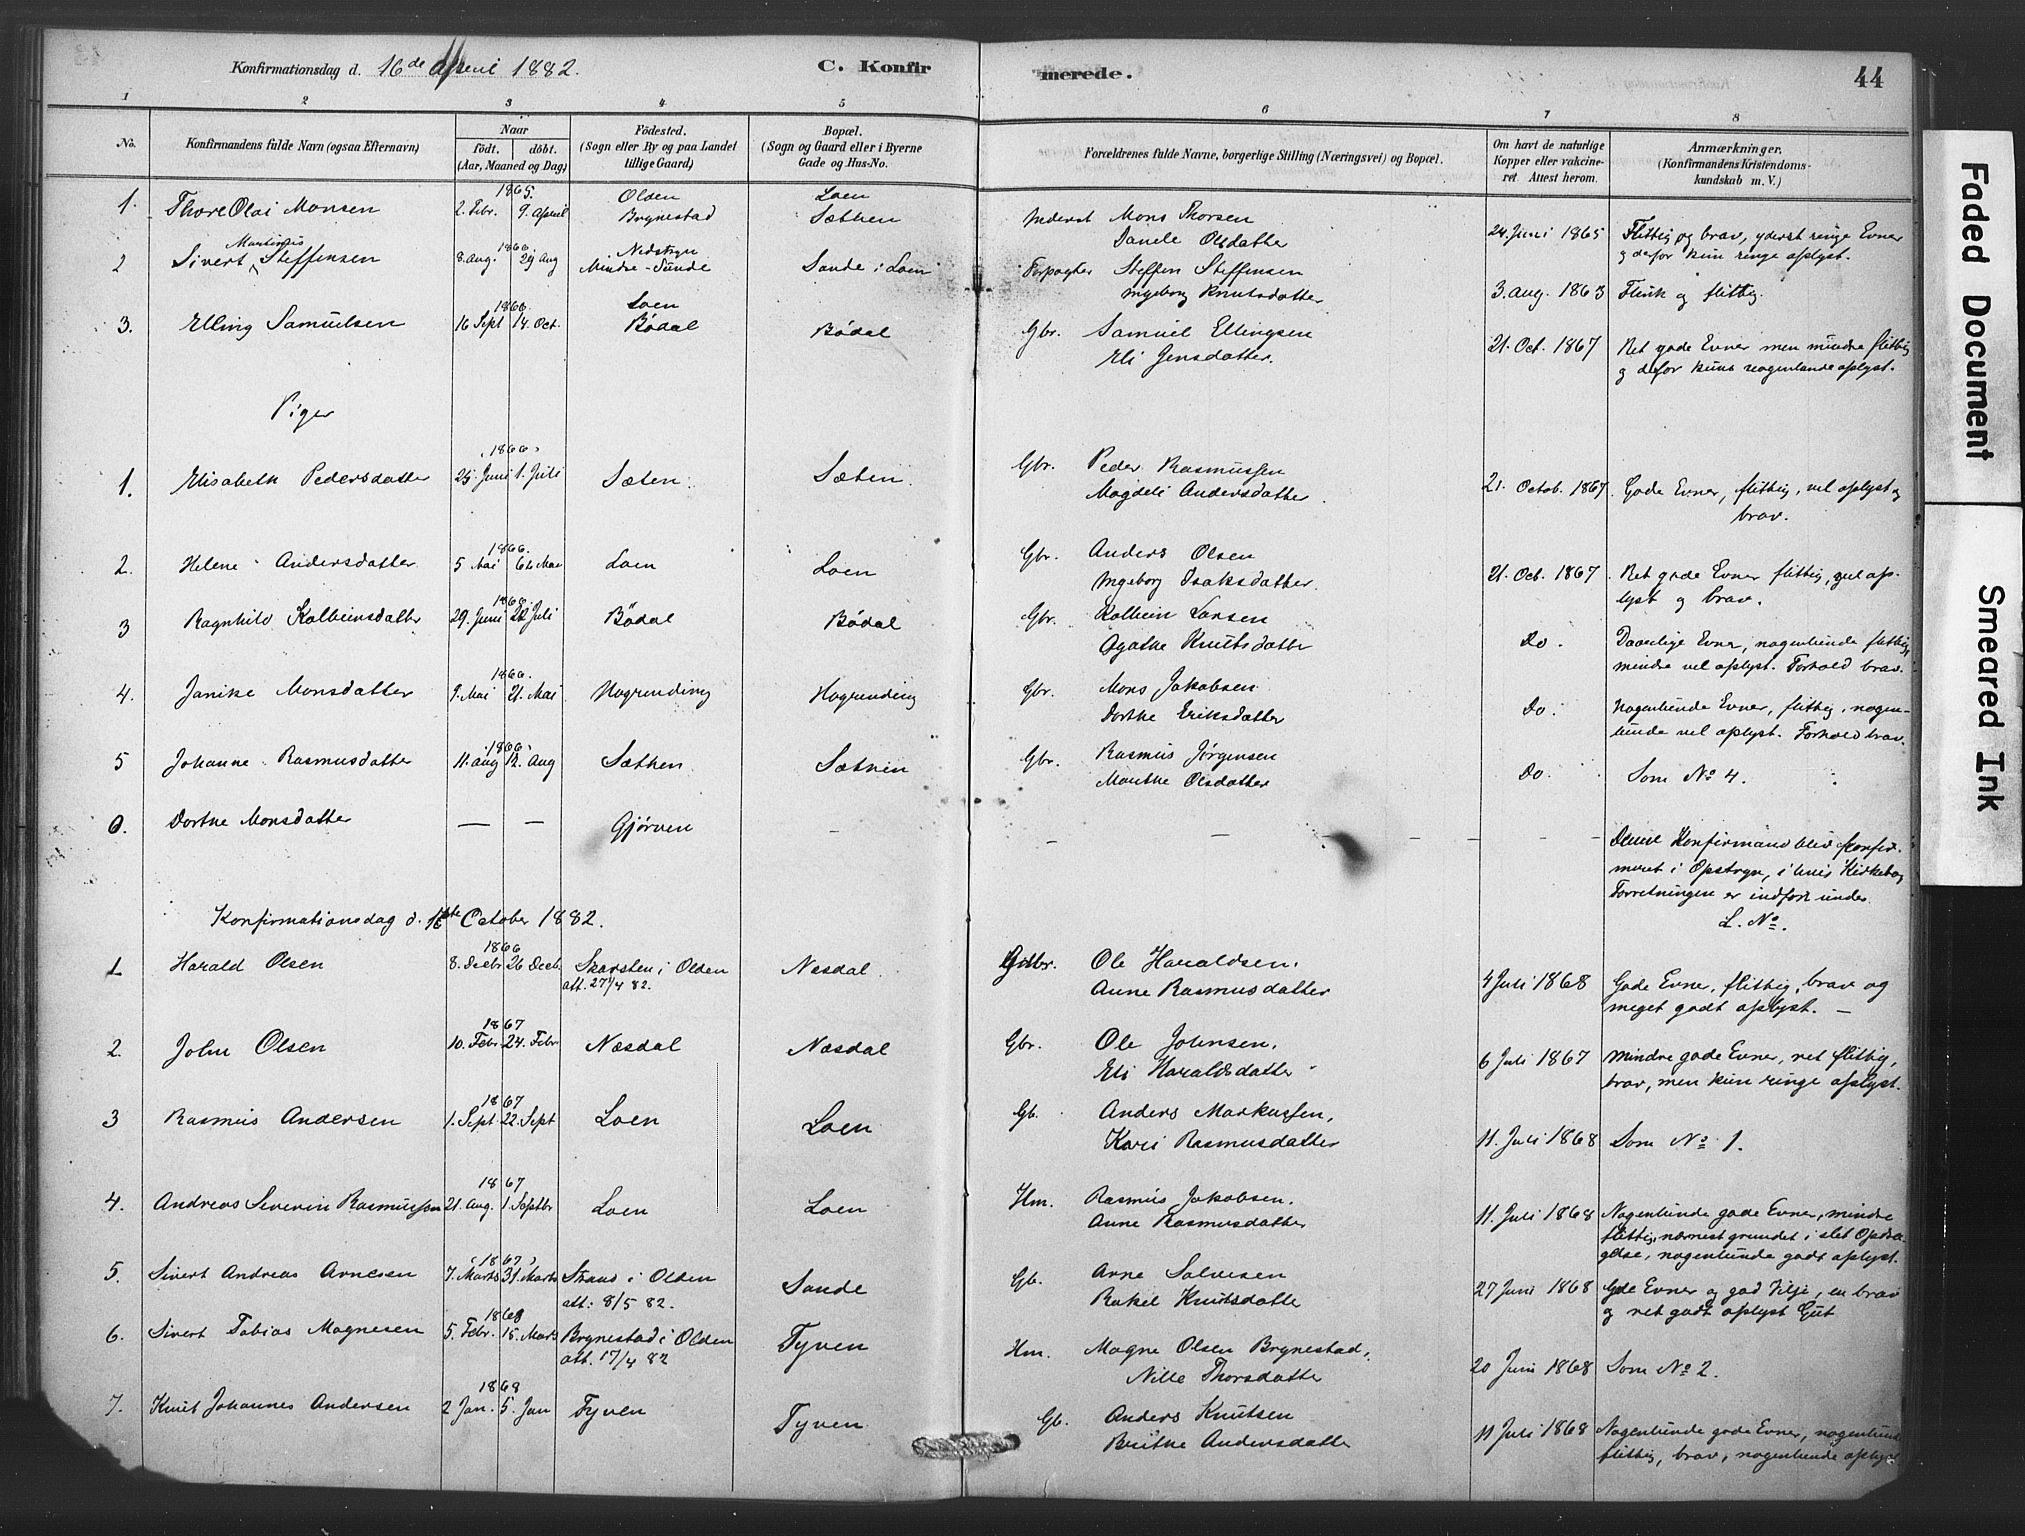 Konfirmationsdag d. 16de April 1882.
C. Konfirmerede.
44
1 2 3 4 5 6 7 8
No.
Konfirmandens fulde Navn (ogsaa Efternavn)
Naar
födt. döbt.
(Aar, Maaned og Dag)
Födested.
(Sogn eller By og paa Landet
tillige Gaard)
Bopæl.
(Sogn og Gaard eller i Byerne
Gade og Hus-No.
Forældrenes fulde Navne, borgerlige Stilling (Næringsvei) og Bopæl.
Om havt de naturlige
Kopper eller vakcine-
ret. Attest herom.
Anmærkninger.
(Konfirmandens Kristendoms-
kundskab m. V.)
1865. Olden Loen
1. Thore Olai Monsen 2. Febr. 9. April Brynestad Sæthen Inderst Mons Thorsen 24. Juni 1865 Flittig og brav, yderst ringe Evner
Danele Olsdatter og derfor kun ringe oplyst.
Martinus 1866 Nedstryn
2 Sivert Steffensen 8. Aug. 29 Aug Mindre-Sunde Sande i Loen Forpagter Steffen Steffensen 3. Aug. 1863 Flink og flittig.
Ingeborg Knutsdatter
1866. Loen
3. Elling Samuelsen 16 Sept 14. Oct. Bödal Bödal Gbr. Samuel Ellingsen 21. Oct. 1867 Ret gode Evner men mindre flittig
Eli Jensdatter. og derfor kuns nogenlunde oplyst.
Piger
1866
1. Elisabeth Pedersdatter 25. Juni 1. Juli Sæten Sæten. Gbr. Peder Rasmussen 21. Octob. 1867. Gode Evner, flittig, vel oplyst og
Magdeli Andersdatter brav.
1866.
2. Helene Andersdatter 5 Mai 6te Mai Loen Loen Gbr. Anders Olsen 21. Oct. 1867 Ret gode Evner flittig, vel op-
Ingeborg Isaksdatter. lyst og brav.
3 Ragnhild Kolbeinsdatter 29. Juni 22 Juli Bödal Bödal Gbr. Kolbein Larsen Do. Daarlige Evner, nogenlunde flittig,
Agathe Knutsdatter mindre vel oplyst. Forhold brav.
1866.
4. Janike Monsdatter 9. Mai 21. Mai Hogrending Hogrending Gbr. Mons Jakobsen Do. Nogenlunde Evner, flittig, nogen-
Dorthe Eriksdatter lunde vel oplyst. Forhold brav.
1866
5 Johanne Rasmusdatter 11. Aug 12. Aug Sæthen Sæthen Gbr. Rasmus Jörgensen Do. Som No 4.
Marithe Olsdatter
6. Dorthe Monsdatter — — Gjörven - - - - -
Denne Konfirmand blev konfir-
meret i Opstryn, i hvis Kirkebog
Forretningen er indfört under
L. No.
Konfirmationsdag d. October 1882.
1866
1 Harald Olsen 8. Decbr 26 Decb. Skarsten i Olden Næsdal Gbr. Ole Haraldsen. 4 Juli 1868 Gode Evner, flittig, brav og
att. 27/4 82. Anne Rasmusdatter meget godt oplyst. —
1867
2. John Olsen 10. Febr. 24. Febr Næsdal Næsdal Gbr. Ole Johnsen. 6 Juli 1867 Mindre gode Evner, ret flittig,
Eli Haraldsdatter brav, men kun ringe oplyst.
1867
3 Rasmus Andersen 1. Sept 22. Sept Loen Loen Gb. Anders Markussen, 11. Juli 1868 Som No 1.
Kari Rasmusdatter
1867
4. Andreas Severin Rasmussen 21. Aug. 1. Septbr Loen Loen Hm. Rasmus Jakobsen. 11. Juli 1868 Nogenlunde gode Evner, mindre
Anne Rasmusdatter flittig, nærmest grundet i slet Opdra-
gelse, nogenlunde godt oplyst.
1867
5. Sivert Andreas Arnesen 7. Marts 31. Marts i Olden Sande Gb. Arne Salvesen 27 Juni 1868 Gode Evner og god Vilje, en brav
att: 8/5 82. Rakel Knutsdatter og ret godt oplyst Gut
1868
6. Sivert Tobias Magnesen 5. Febr. 15. Marts Brynestad i Olden Tyven Hm. Magne Olsen Brynestad, 20 Juni 1868 Som No 2.
att. 17/4 82 Nille Thorsdatter
1868
7. Knut Johannes Andersen 2 Jan. 5. Jan Tyven Tyven Gb. Anders Knutsen 11 Juli 1868 Nogenlunde gode Evner, nogenlunde
Brithe Andersdatter flittig, brav, nogenlunde oplyst
Faded Document
Smeared Ink